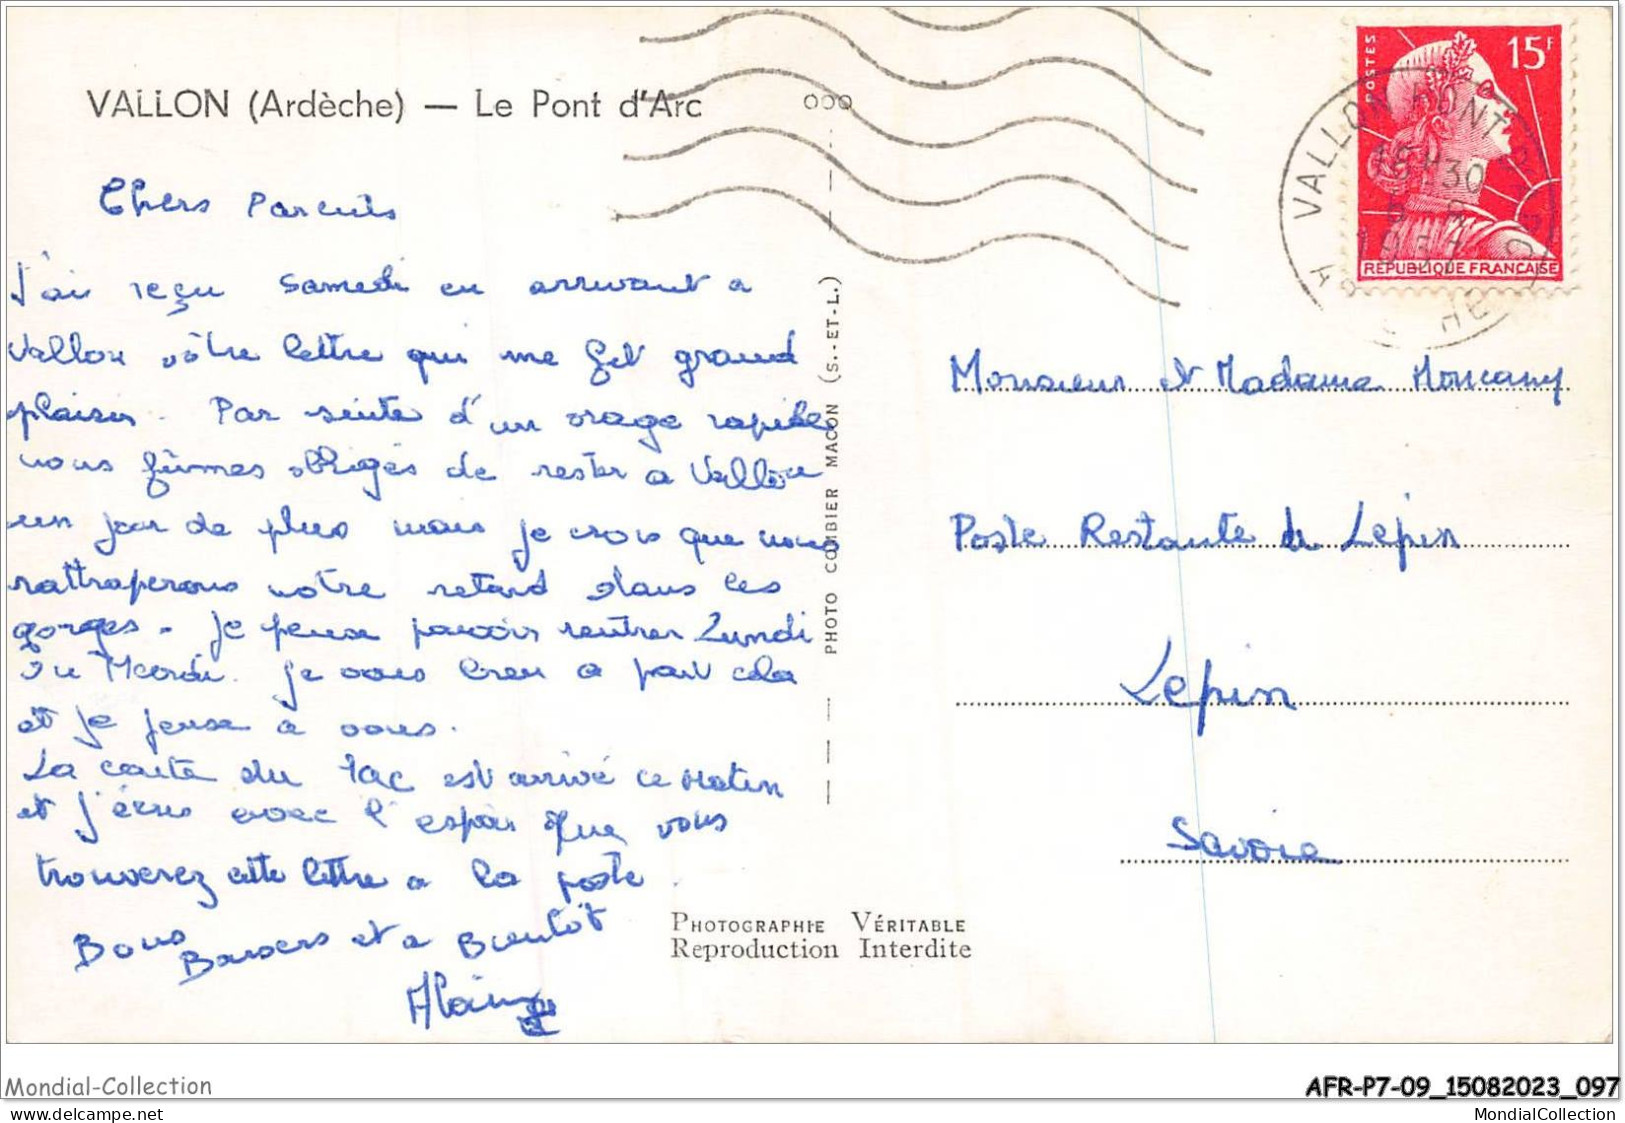 VALLON (Ardèche) — Le Pont d'Arc
Chers Parents
J'ai reçu Samedi en arrivant a
Vallon vôtre lettre qui me fit grand
plaisir. Par suite d'un orage rapide
nous fûmes obligés de rester a Vallon
un jour de plus mais je crois que nous
rattraperons notre retard dans les
gorges. Je pense pouvoir rentrer Lundi
ou Mardi. Je vous a part cela
et je pense à vous.
La carte du lac est arrivé ce matin
et j'écris avec l'espoir que vous
trouverez cette lettre a la poste.
Bons Baisers et a Bientôt
Alain
PHOTO COMBIER MACON (S.-ET-L.)
PHOTOGRAPHIE VÉRITABLE
Reproduction Interdite
POSTES
15F
RÉPUBLIQUE FRANÇAISE
VALLON PONT
Monsieur et Madame Moncany
Poste Restante de Lépin
Lepin
Savoie
Mondial-Collection
AFR-P7-09_15082023_097
www.delcampe.net
MondialCollection